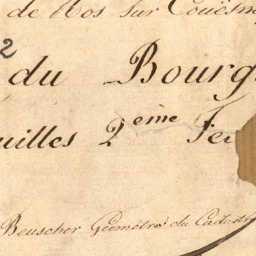 de Vos sur Couësn
2
du Bourg
uilles 2ème Feu
Beuscher Géomètre du Cadas